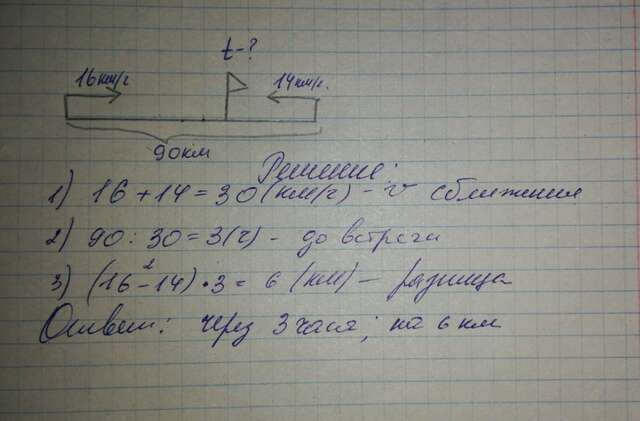 t-?
16км/г 14км/г.
90км
Решение:
1) 16 + 14 = 30 (км/г) - v сближения
2) 90 : 30 = 3(г) - до встречи
3) (16 - 14) • 3 = 6 (км) — разница
2
Ответ: через 3 часа; на 6 км